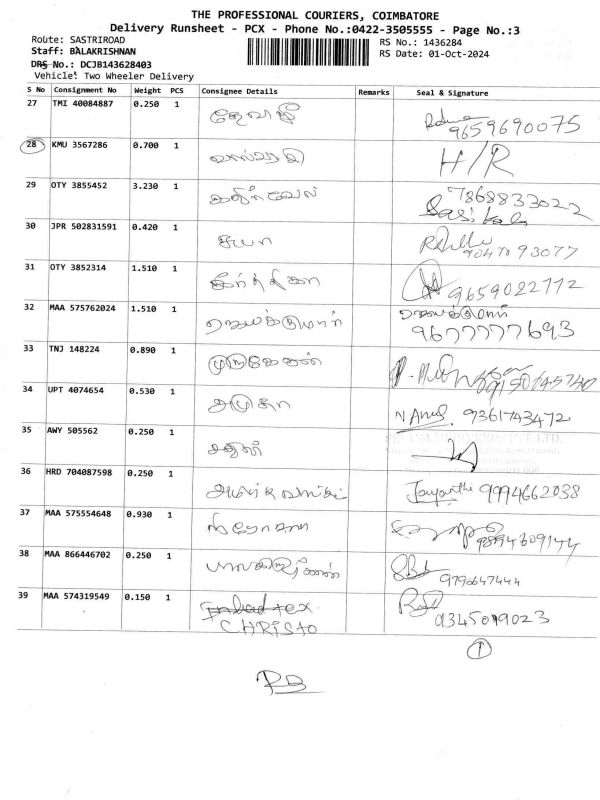 THE PROFESSIONAL COURIERS, COIMBATORE
Delivery Runsheet - PCX - Phone No.:0422-3505555 - Page No.:3
Route: SASTRIROAD RS No.: 1436284
Staff: BALAKRISHNAN RS Date: 01-Oct-2024
DRS No.: DCJB143628403
Vehicle: Two Wheeler Delivery
S No Consignment No Weight PCS Consignee Details Remarks Seal & Signature
27 TMI 40084887 0.250 1
9659690075
28 KMU 3567286 0.700 1 H/R
29 OTY 3855452 3.230 1 கதிர்வேல் 7868833022
Sasikala
30 JPR 502831591 0.420 1
9047093077
31 OTY 3852314 1.510 1 கீர்த்திகா 9659022712
32 MAA 575762024 1.510 1 ஜெயக்குமார் ஜெயக்குமார்
9677777693
33 TNJ 148224 0.890 1 முருகேசன் 9150745740
34 UPT 4074654 0.530 1 அமுதா 9361743472
35 AWY 505562 0.250 1
36 HRD 704087598 0.250 1 Jayanthi 9994662038
37 MAA 575554648 0.930 1
9894309144
38 MAA 866446702 0.250 1 பாலகிருஷ்ணன் 9790647444
39 MAA 574319549 0.150 1
CHRISTO 9345019023
1